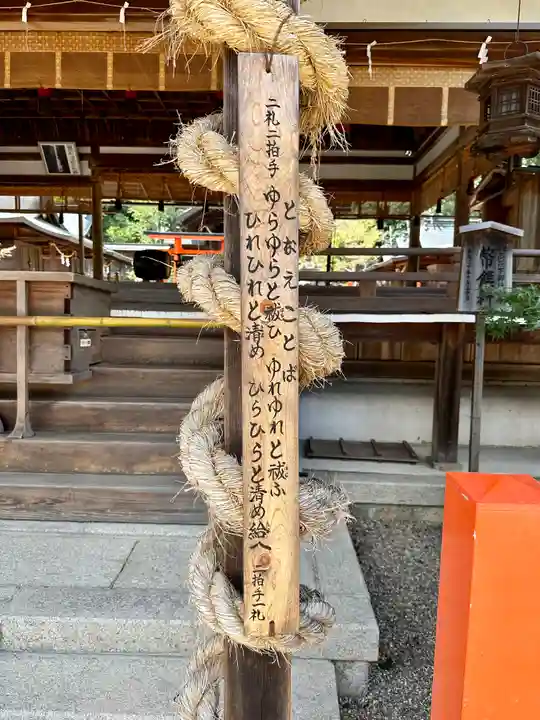 となえことば
二礼二拍手 ゆらゆらと祓ひ ゆれゆれと祓ふ
ひれひれと清め ひらひらと清め給へ 二拍手一礼